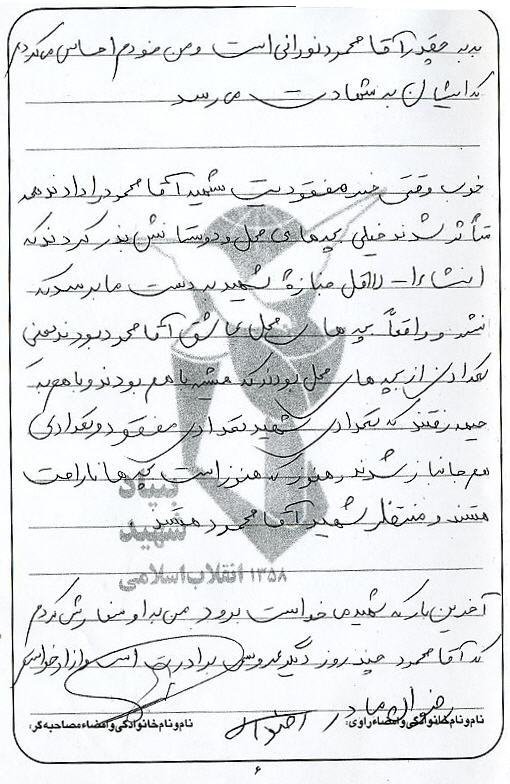 به به چقدر آقا محمود نورانی است و من خودم احساس می‌کردم
که ایشان به شهادت می رسد
خوب وقتی خبر مفقودیت شهید آقا محمود را دادند همه
متأثر شدند خیلی بچه های محل و دوستانش نذر کردند که
انشاءا... لااقل جنازهٔ شهید به دست ما برسد که
نشد و واقعاً بچه های محل عاشق آقا محمود بودند یعنی
تعدادی از بچه های محل بودند که همیشه با هم بودند و با هم به
جبهه رفتند که تعدادی شهید تعدادی مفقود و تعدادی
هم جانباز شدند و هنوز که هنوز است بچه ها ناراحت
هستند و منتظر شهید آقا محمود هستند
بنیاد
شهید
انقلاب اسلامی ۱۳۵۸
آخرین بار که شهید می خواست برود من به او سفارش کردم
که آقا محمود چند روز دیگر عروسی برادرت است و از او خواستم
نام و نام خانوادگی و امضاء راوی:
مادر
نام و نام خانوادگی و امضاء مصاحبه گر:
۶